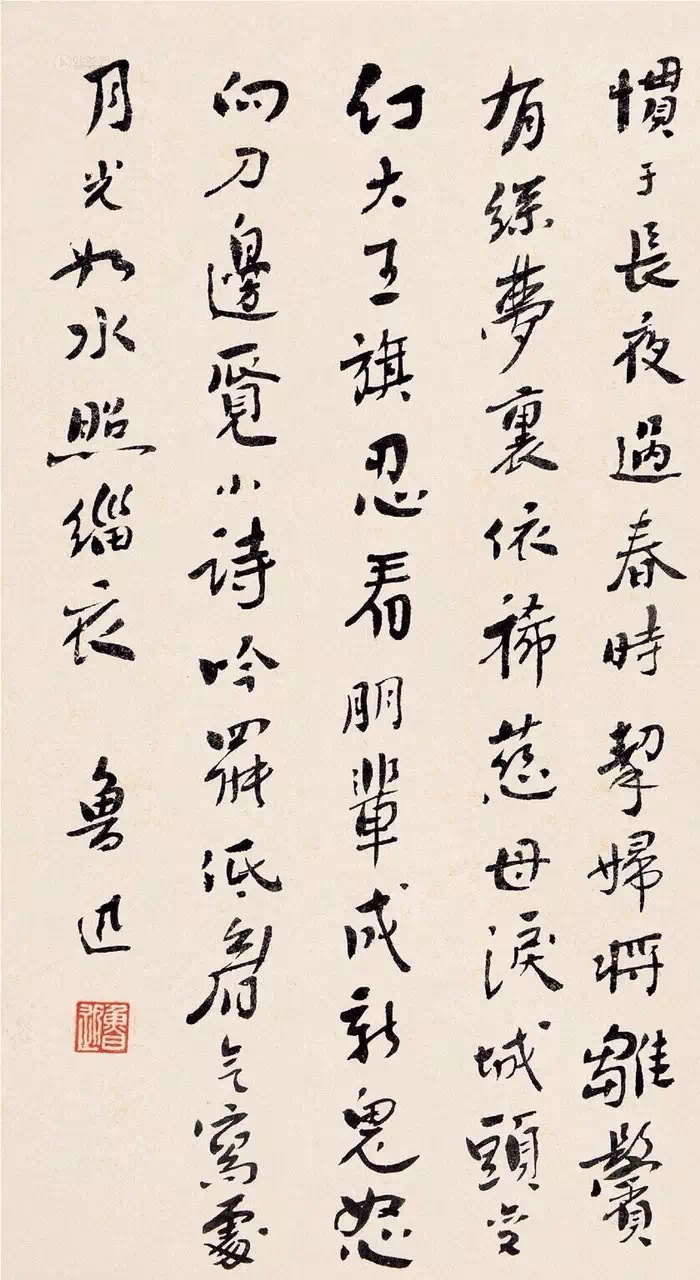 慣于長夜過春時挈婦將雛鬢
有絲夢裏依稀慈母淚城頭变
幻大王旗忍看朋輩成新鬼怒
向刀邊覓小詩吟罷低眉无寫處
月光如水照緇衣
魯迅
魯迅